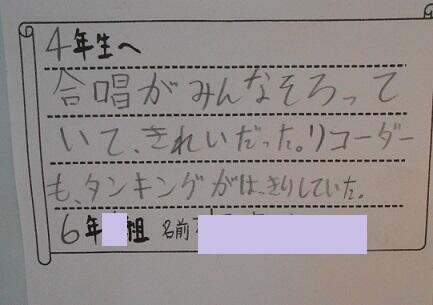 4年生へ
合唱がみんなそろって
いて、きれいだった。リコーダー
も、タンキングがはっきりしていた。
6年 組 名前